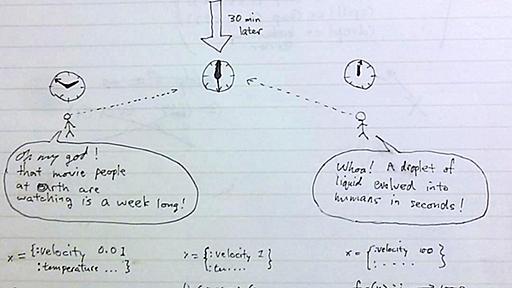 30 min
later
Oh my god!
that movie people
at earth are
watching is a week long!
Whoa! A droplet of
liquid evolved into
humans in seconds!
x = {:velocity 0.01
:temperature ... }
x = {:velocity 1
x = {:velocity 100